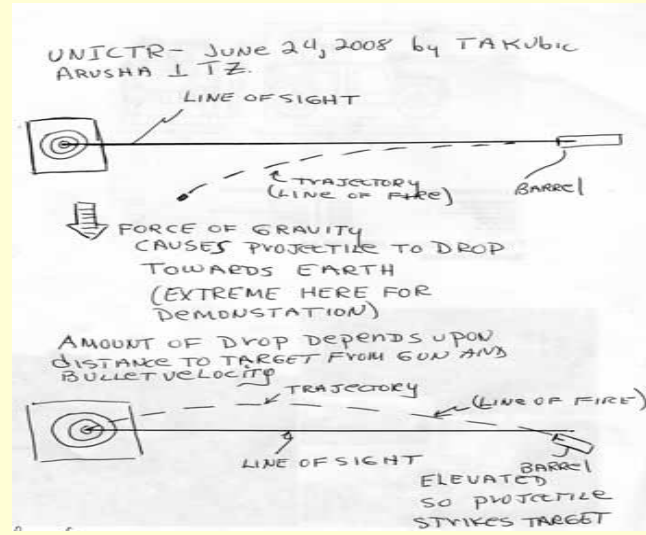 UNICTR- JUNE 24, 2008 by TAKUbIC
ARUSHA 1 TZ.
LINE OF SIGHT
TRAJECTORY
(LINE OF FIRE)
BARREL
FORCE OF GRAVITY
CAUSES PROJECTILE TO DROP
TOWARDS EARTH
(EXTREME HERE FOR
DEMONSTATION)
AMOUNT OF DROP DEPENDS UPON
DISTANCE TO TARGET FROM GUN AND
BULLET VELOCITY
TRAJECTORY
(LINE OF FIRE)
LINE OF SIGHT
BARREL
ELEVATED
SO PROJECTILE
STRIKES TARGET